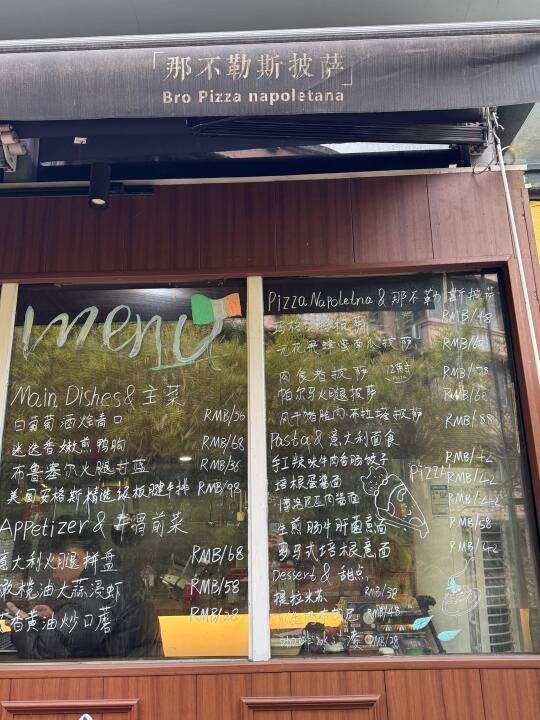 「那不勒斯披萨」
Bro Pizza napoletana
menu
Main Dishes & 主菜
白葡萄酒烩青口 RMB/56
迷迭香嫩煎鸭胸 RMB/68
布鲁塞尔火腿甘蓝 RMB/36
美国安格斯精选级板腱牛排 RMB/98
Appetizer & 开胃前菜
意大利火腿拼盘 RMB/68
橄榄油大蒜浸虾 RMB/58
黄油炒口蘑 RMB/28
Pizza Napoletna & 那不勒斯披萨
披萨 RMB/48
披萨
肉食者披萨 12英寸
帕尔马火腿披萨 RMB/68
披萨 RMB/88
Pasta & 意大利面食
手工辣味牛肉香肠饺子 RMB/42
培根蛋酱面 RMB/42
博洛尼亚肉酱面
生煎肠牛肝菌意面 RMB/58
罗马式培根意面 RMB/42
Pizza
Dessert & 甜点
提拉米苏 RMB/38
RMB/48
咖啡冰 RMB/28